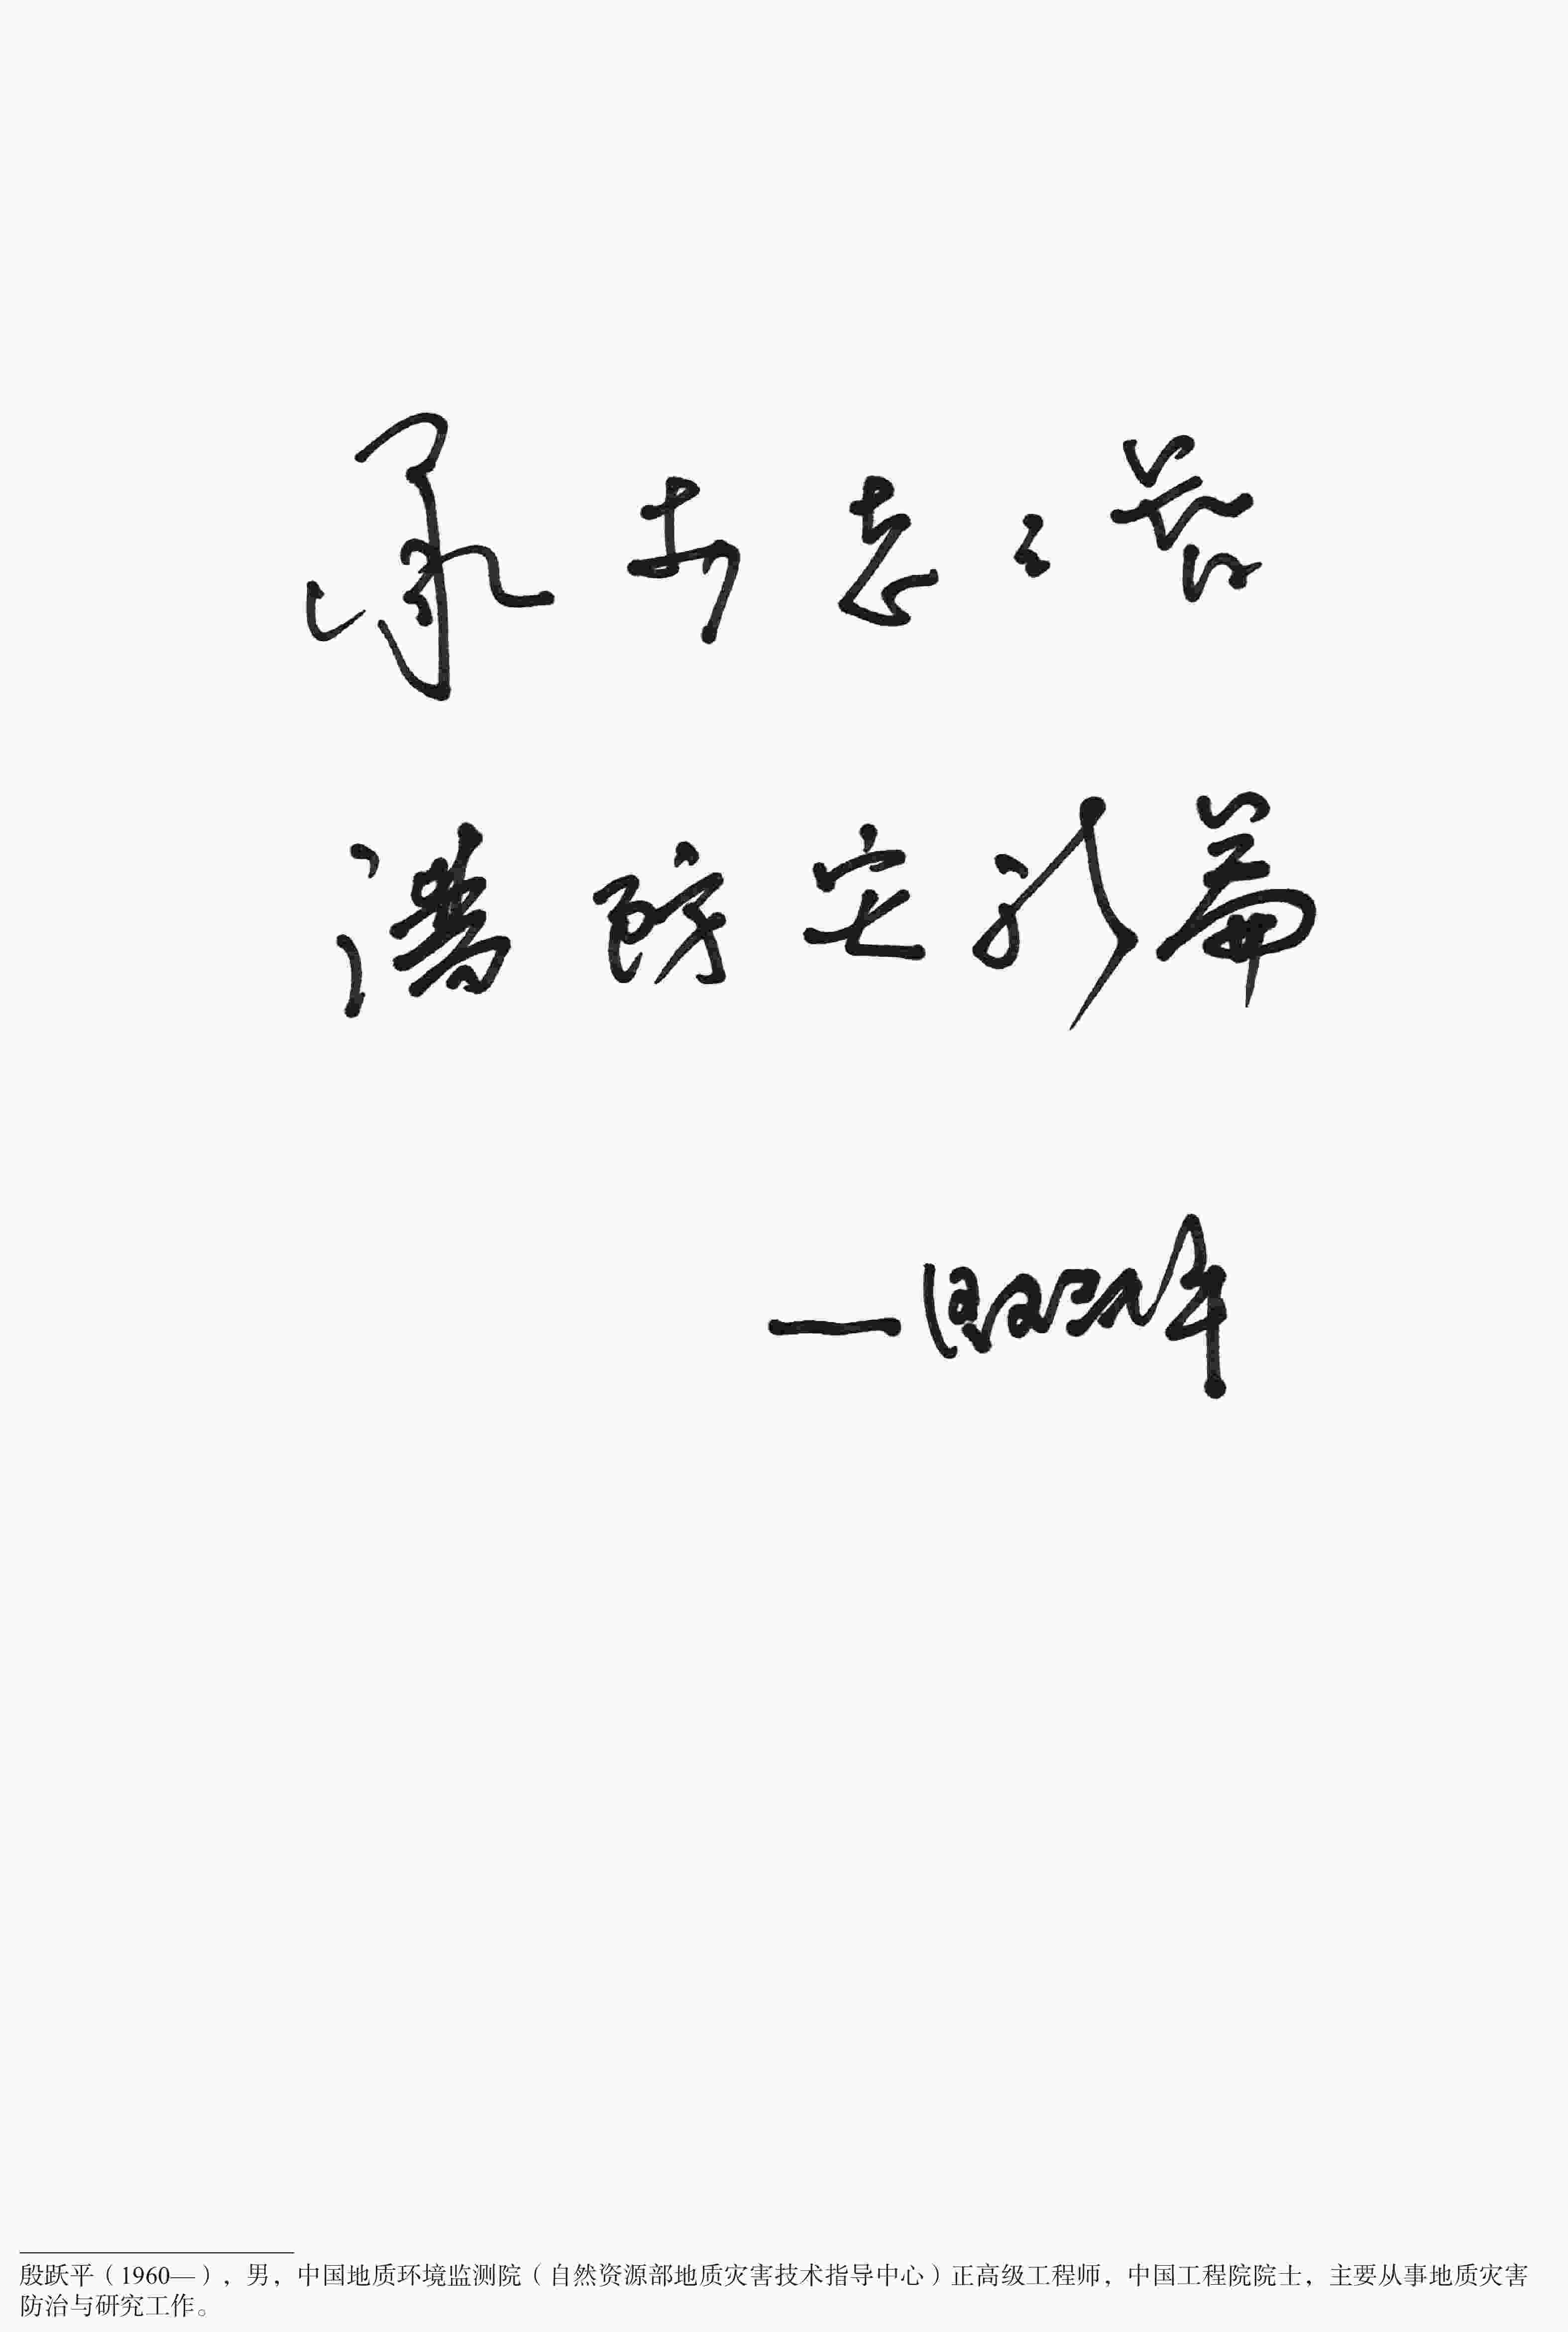 承前志之基
谱防灾新篇
—殷跃平
殷跃平（1960—），男，中国地质环境监测院（自然资源部地质灾害技术指导中心）正高级工程师，中国工程院院士，主要从事地质灾害
防治与研究工作。